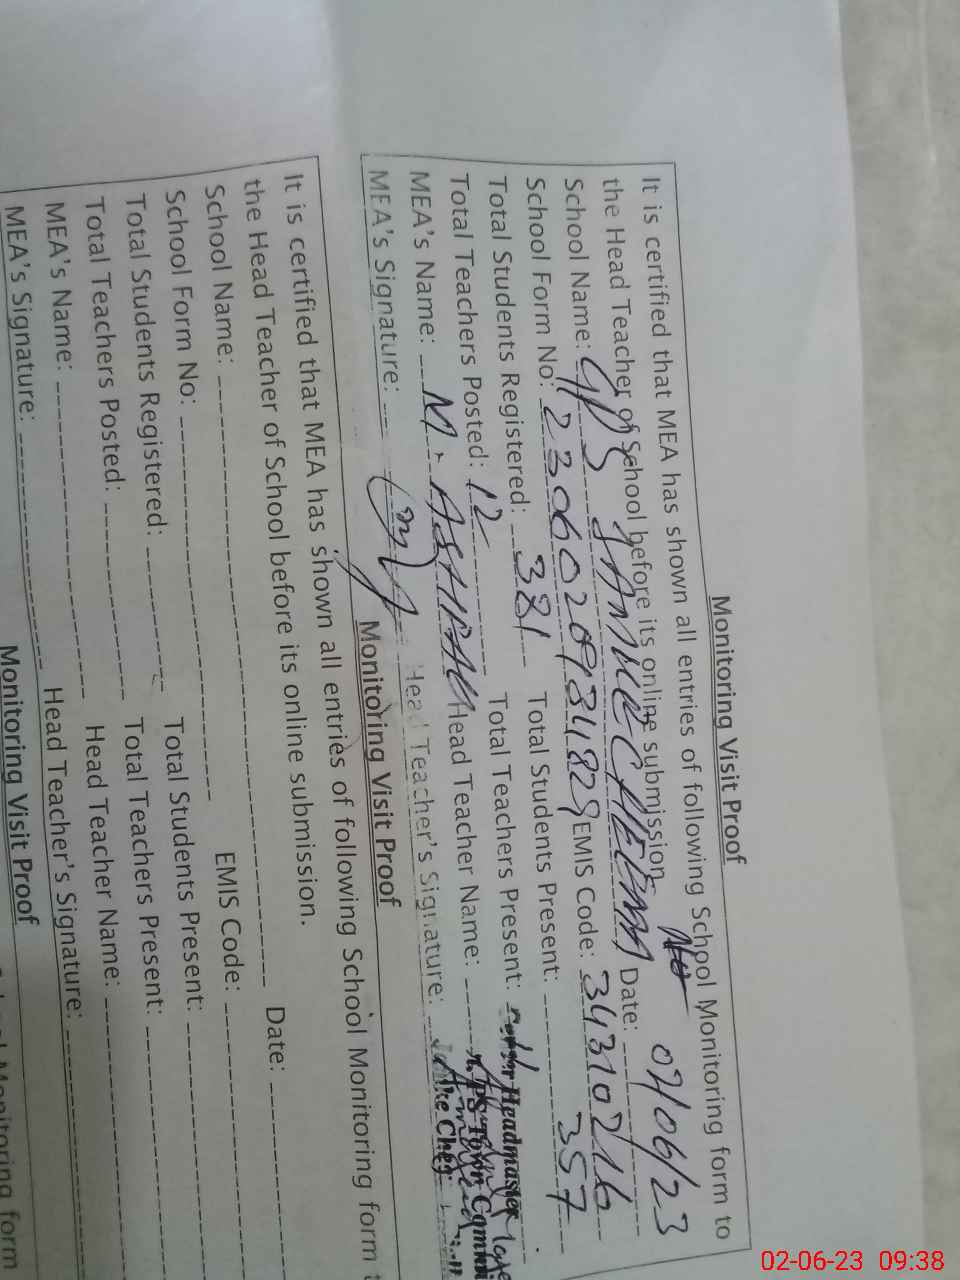 Monitoring Visit Proof
It is certified that MEA has shown all entries of following School Monitoring form to
the Head Teacher of School before its online submission.
School Name: GPS Date: 02/06/23
School Form No: EMIS Code: 34310216
Total Students Registered: 381 Total Students Present: 357
Total Teachers Posted: 12 Total Teachers Present:
MEA's Name: M. Head Teacher Name:
MEA's Signature: Head Teacher's Signature:
Headmaster
Monitoring Visit Proof
It is certified that MEA has shown all entries of following School Monitoring form
the Head Teacher of School before its online submission.
School Name: Date:
School Form No: EMIS Code:
Total Students Registered: Total Students Present:
Total Teachers Posted: Total Teachers Present:
MEA's Name: Head Teacher Name:
MEA's Signature: Head Teacher's Signature:
Monitoring Visit Proof
02-06-23 09:38